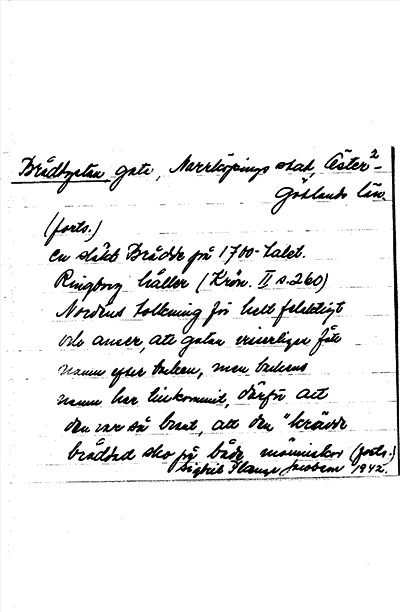 Bråddgatan gata, Norrköpings stad, Öster- 2
götlands län.
(forts.)
en släkt Brådde på 1700-talet.
Ringborg håller (Krön. II s. 260)
Nordéns tolkning för helt felaktigt
och anser, att gatan visserligen fått
namn efter backen, men backens
namn har tillkommit, därför att
den var så brant, att den "krävde
bråddad sko på både människor (forts.)
Sigfrid Plange Jacobson 1942.